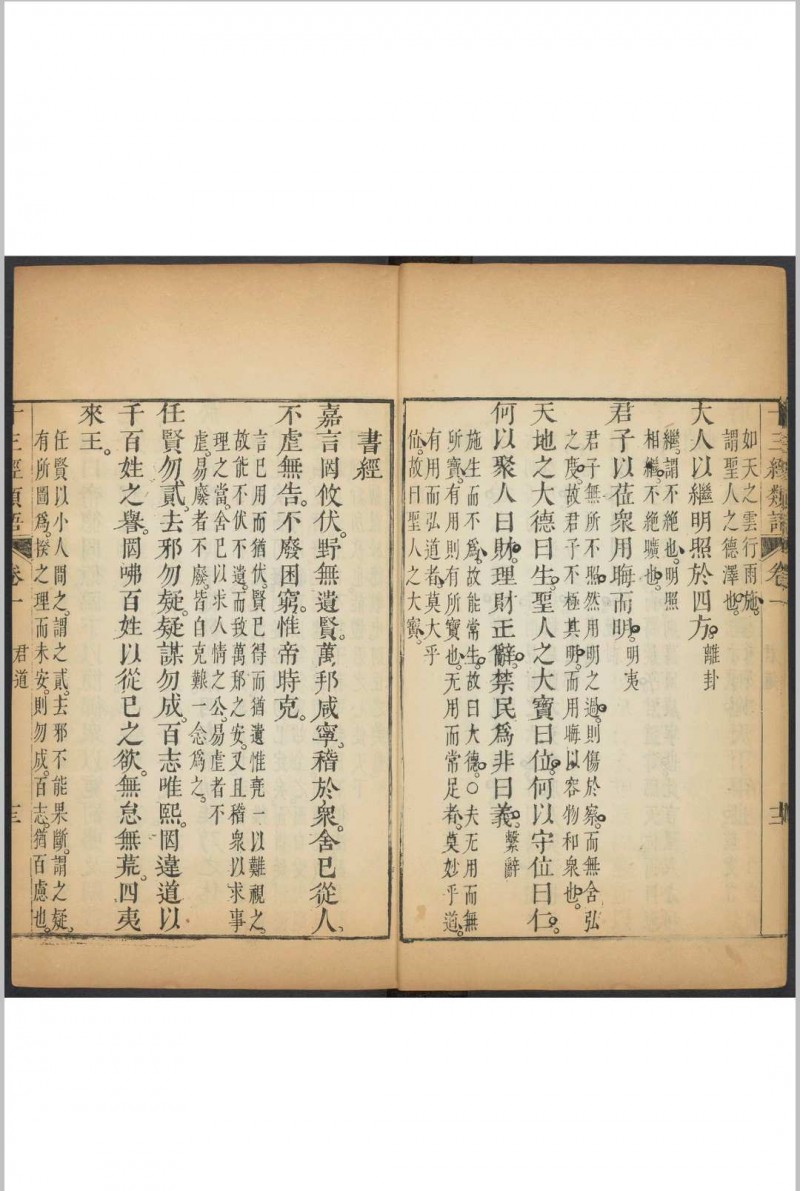 十三經類語 卷一
如天之雲行雨施
謂聖人之德澤也
大人以繼明照於四方離卦
繼謂不絶也明照
相繼不絶曠也
君子以莅衆用晦而明明夷
君子無所不照然用明之過則傷於察而無含弘
之度故君子不極其明而用晦以容物和衆也
天地之大德曰生聖人之大寶曰位何以守位曰仁
何以聚人曰財理財正辭禁民爲非曰義繫辭
施生而不爲故能常生故曰大德○夫无用而無
所寶有用則有所寶也无用而常足者莫妙乎道
有用而弘道者莫大乎
位故曰聖人之大寶
書經
嘉言罔攸伏野無遺賢萬邦咸寧稽於衆舍已從人
不虐無告不廢困窮惟帝時克
言已用而猶伏賢已得而猶遺惟堯一以難視之
故能不伏不遺而致萬邦之安又且稽衆以求事
理之當舍已以求人情之公易虐者不
虐易廢者不廢皆自克難一念爲之
任賢勿貳去邪勿疑疑謀勿成百志唯熙罔違道以
千百姓之譽罔咈百姓以從已之欲無怠無荒四夷
來王
任賢以小人間之謂之貳去邪不能果斷謂之疑
有所圖爲揆之理而未安則勿成百志猶百慮也
十三經類語 卷一 君道 三